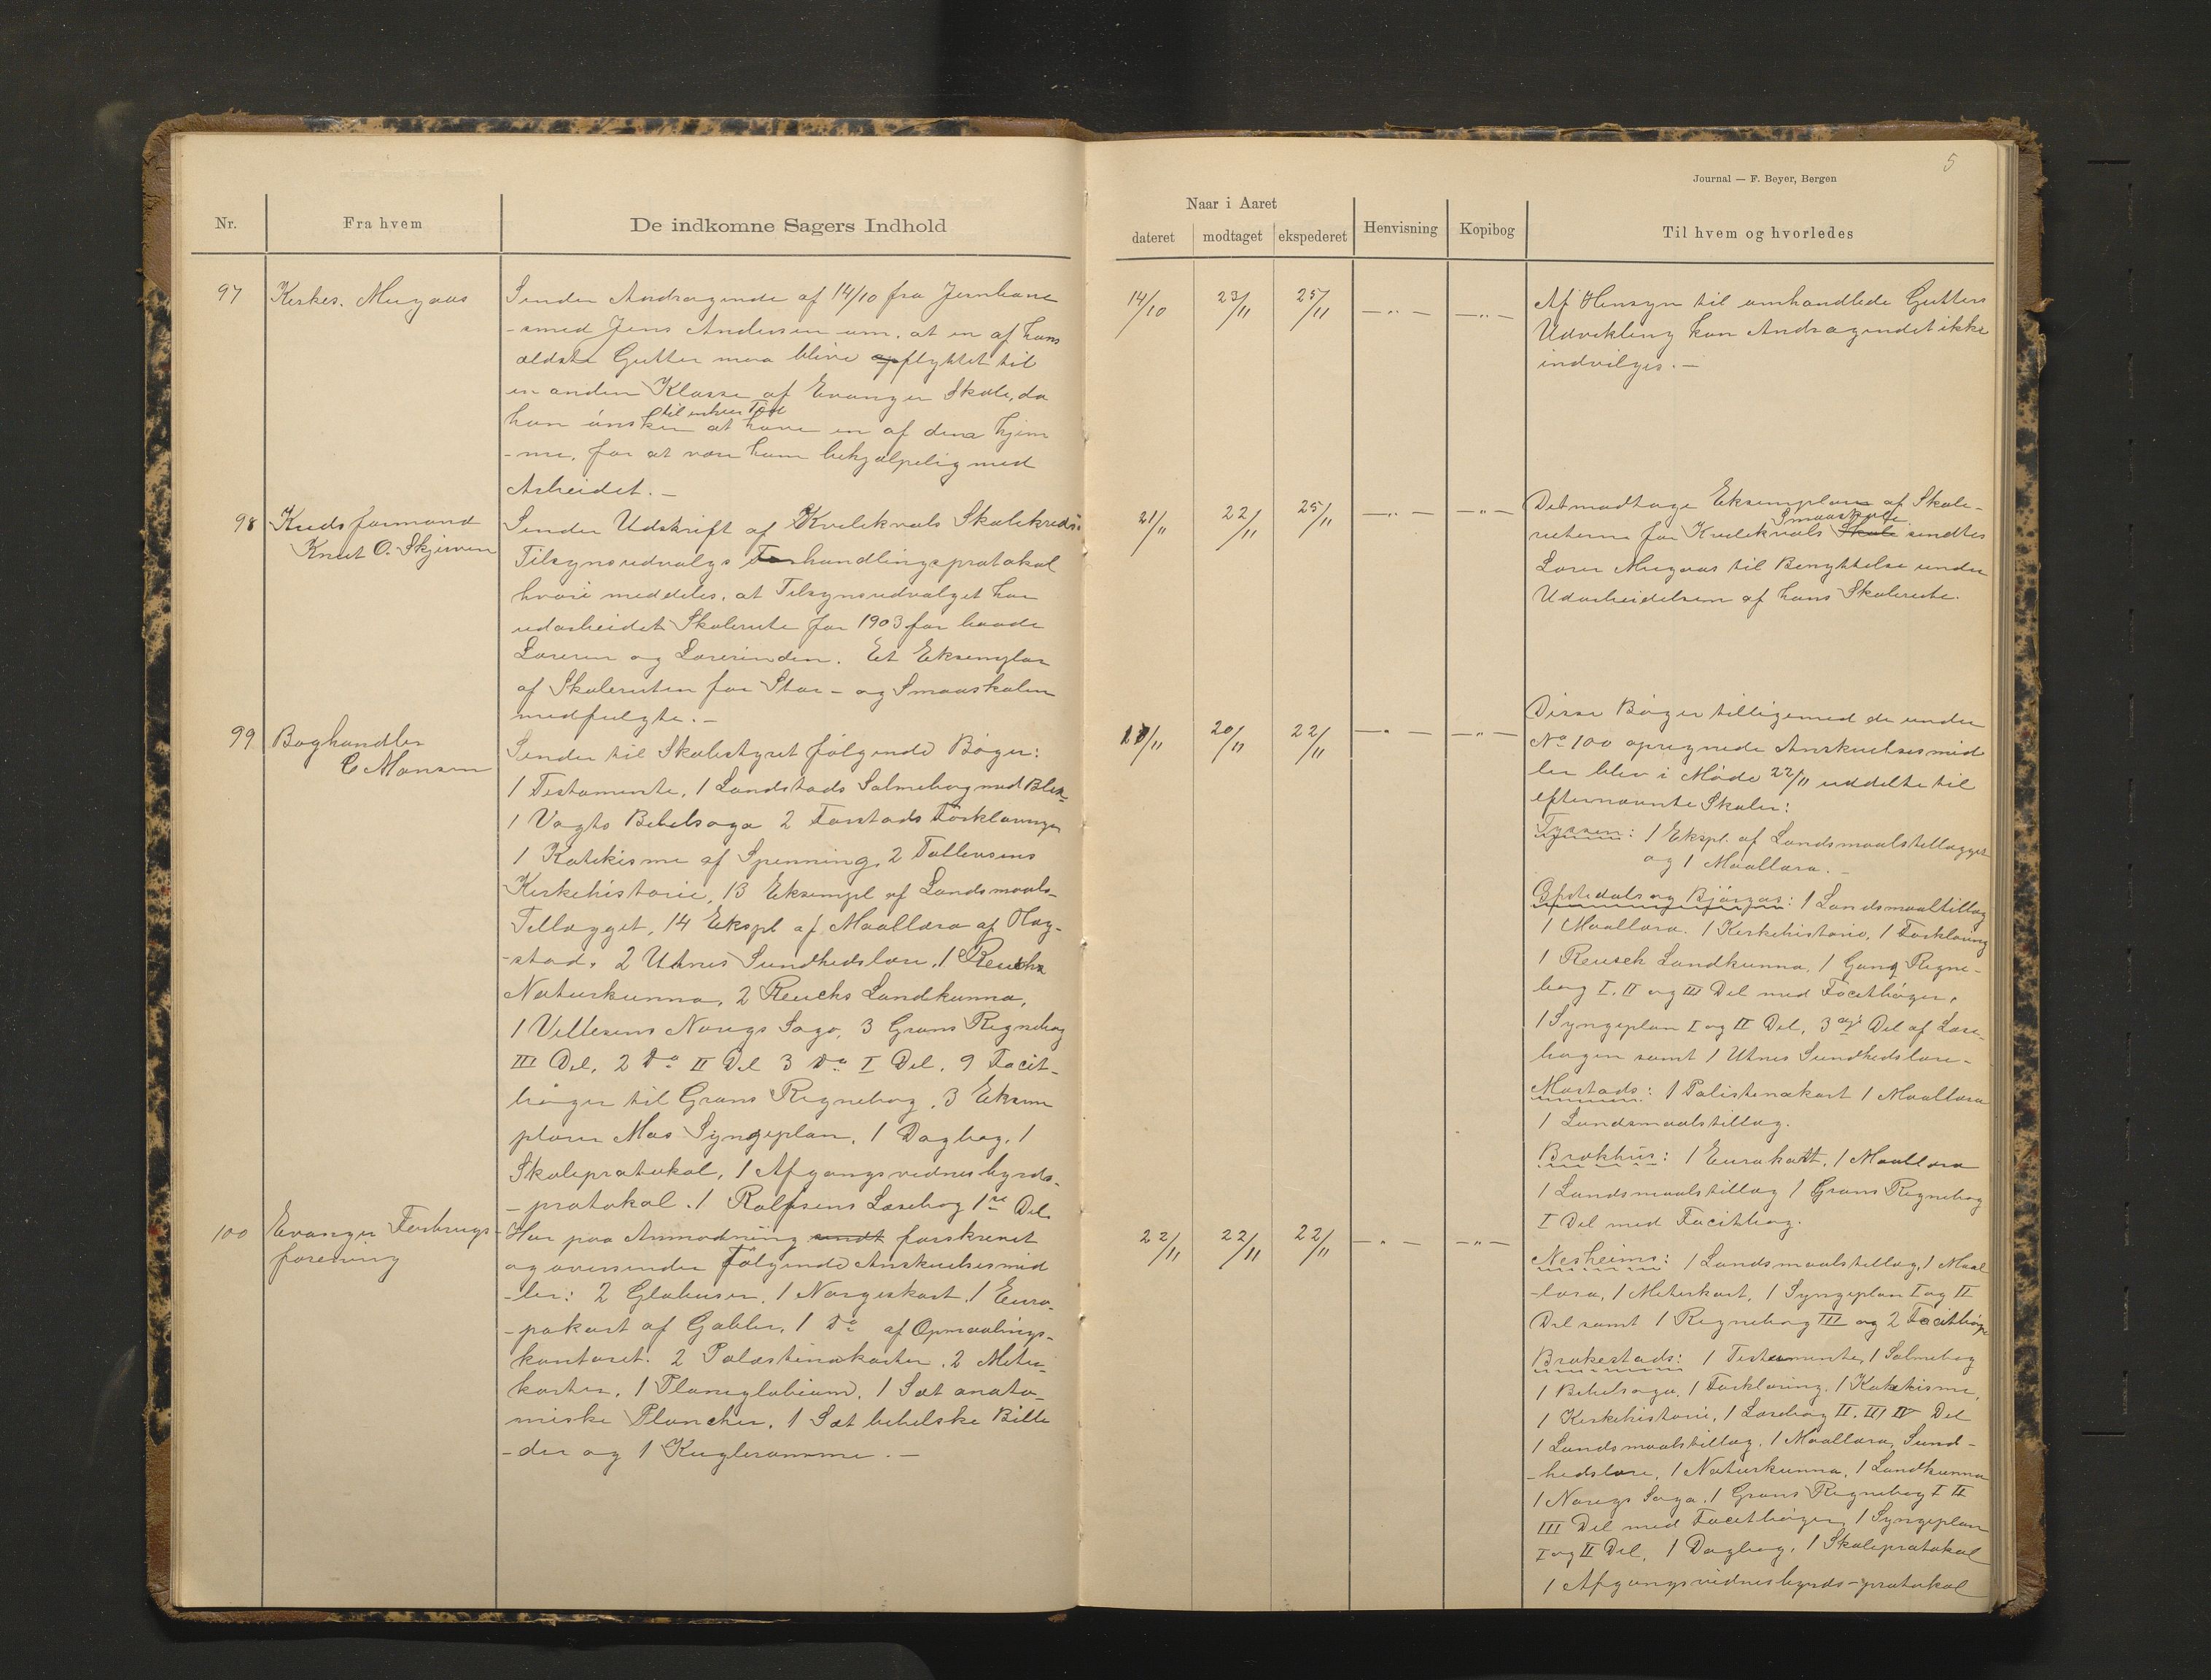 5
Journal — F. Beyer, Bergen
Nr.
Fra hvem
De indkomne Sagers Indhold
Naar i Aaret
dateret
modtaget
ekspederet
Henvisning
Kopibog
Til hvem og hvorledes
97
Kirkes. Mugaas
Sender Andragende af 14/10 fra Jernbane
-smed Jens Andersen om, at en af hans
ældste Gutter maa blive opflyttet til
en anden Klasse af Evanger Skole, da
til enhver Tid
han ønsker at have en af dem hjem
-me, for at være ham behjælpelig med
Arbeidet. —
14/10
23/11
25/11
— " —
— " —
Af Hensyn til omhandlede Gutters
Udvikling kan Andragendet ikke
indvilges. —
98
Kredsformand
Knut O. Skjerven
Sender Udskrift af Kvilekvals Skolekreds's
Tilsynsudvalgs Forhandlingsprotokol
hvori meddeles, at Tilsynsudvalget har
udarbeidet Skolerute for 1903 for baade
Læreren og Lærerinden. Et Eksemplar
af Skoleruten for Stor- og Smaaskolen
medfulgte. —
21/11
22/11
25/11
— " —
— " —
Det modtagne Eksemplar af Skole-
Smaaskole
ruterne for Kvilekvals Skole sendtes
Lærer Mugaas til Benyttelse under
Udarbeidelsen af hans Skolerute.
99
Boghandler
C Monsen
Sender til Skolestyret følgende Bøger:
1 Testamente, 1 Landstads Salmebog med Blek
1 Vogts Bibelsoga 2 Tarstads Forklaringer
1 Katekisme af Spenning, 2 Tallevsens
Kirkehistorie, 13 Eksempl af Landsmaals-
Tillægget, 14 Ekspl af Maallæra af Hæg-
-stad, 2 Utnes Sundhedslære, 1 Reuschs
Naturkunna, 2 Reuchs Landkunna,
1 Villesens Noregs Sogo, 3 Grans Regnebog
III Del, 2 Do II Del 3 Do I Del, 9 Facit-
bøger til Grans Regnebog, 3 Eksem
plarer Mas Syngeplan, 1 Dagbog, 1
Skoleprotokol, 1 Afgangsvidnesbyrds-
-protokol. 1 Rolfsens Læsebog 1re Del.
17/11
20/11
22/11
— " —
— " —
Disse Bøger tilligemed de under
No 100 opregnede Anskuelsesmid
ler blev i Møde 22/11 uddelte til
efternævnte Skoler:
Tyssen: 1 Ekspl. af Landsmaalstillægget
og 1 Maallæra. —
Øfstedals og Bjørgos: 1 Landsmaaltillæg
1 Maallæra. 1 Kirkehistorie, 1 Forklaring
1 Reusch Landkunna, 1 Grans Regne-
bog I, II og III Del med Facitbøger,
1 Syngeplan I og II Del, 3die Del af Læse-
bogen samt 1 Utnes Sundhedslære-
Mostads: 1 Palistenakart 1 Maallæra
1 Landsmaalstillæg.
Brakhus: 1 Eurakart, 1 Maallæra
1 Landsmaalstillæg 1 Grans Regnebog
I Del med Facitbog.
100
Evanger Forbrugs-
forening
Har paa Anmodning sendt forskrevet
og oversender følgende Anskuelsesmid
-ler: 2 Globuser, 1 Norgeskart, 1 Euro-
-pakart af Gabler, 1 Do af Opmaalings-
kontoret. 2 Palæstinakarter, 2 Meter-
karter, 1 Planiglobium, 1 Sæt anato-
miske Plancher, 1 Sæt bibelske Bille
-der og 1 Kugleramme. —
22/11
22/11
22/11
— " —
— " —
Nesheims: 1 Landsmaalstillæg, 1 Maal
-læra, 1 Meterkart, 1 Syngeplan I og II
Del samt 1 Regnebog III og 2 Facitbøger
Brakestads: 1 Testamente, 1 Salmebog
1 Bibelsoga, 1 Forklaring. 1 Katekisme,
1 Kirkehistorie, 1 Læsebog II, III IV Del
1 Landsmaalstillæg, 1 Maallæra, Sund-
-hedslære, 1 Naturkunna, 1 Landkunna
1 Noregs Soga. 1 Grans Regnebog I II
III Del med Facitbøger, 1 Syngeplan
I og II Del, 1 Dagbog, 1 Skoleprotokol
1 Afgangsvidnesbyrds-protokol